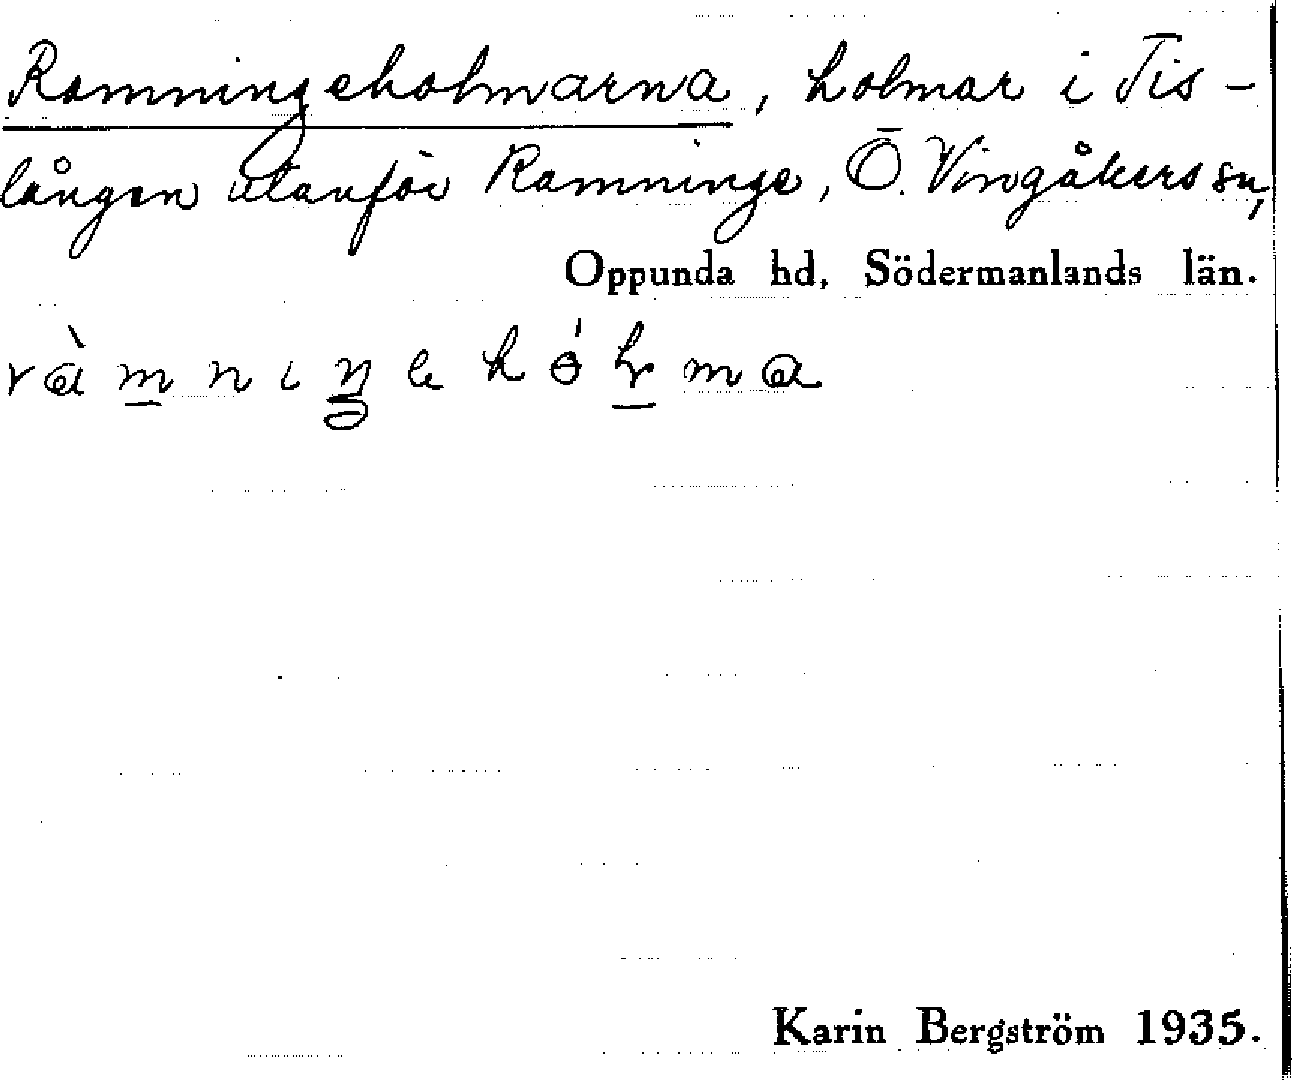 Ramningeholmarna, holmar i Tis-
lången utanför Ramninge, Ö. Vingåkers sn,
Oppunda hd, Södermanlands län.
Karin Bergström 1935.